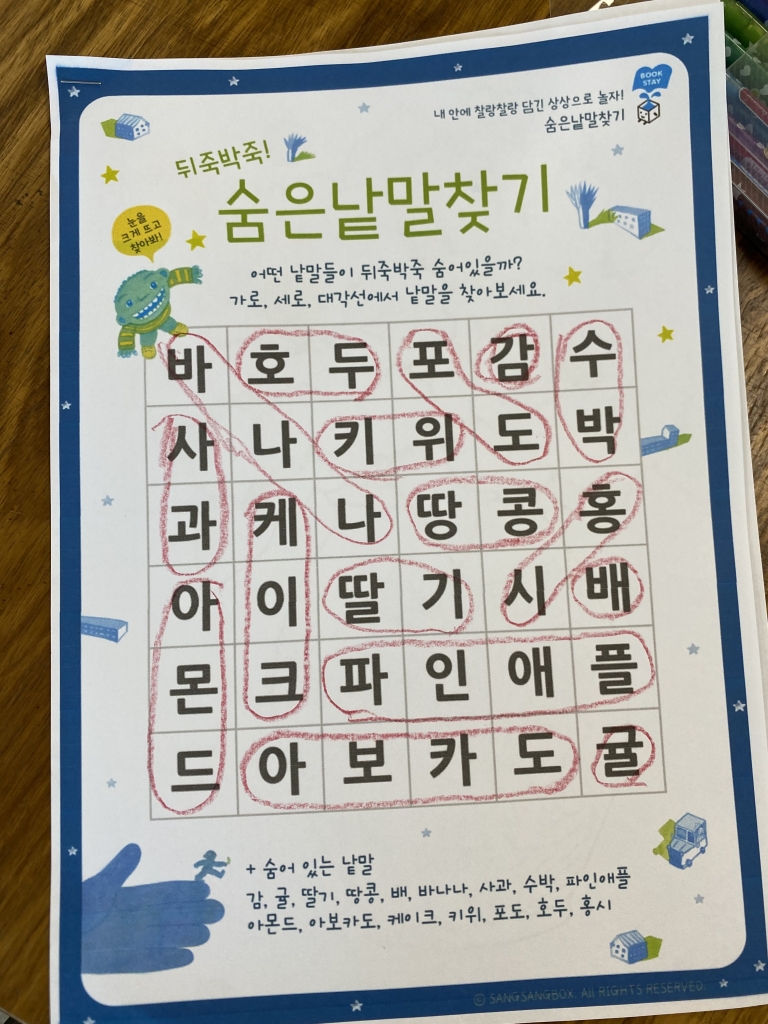 BOOK
STAY
내 안에 찰랑찰랑 담긴 상상으로 놀자!
숨은낱말찾기
뒤죽박죽!
숨은낱말찾기
눈을
크게 뜨고
찾아봐!
어떤 낱말들이 뒤죽박죽 숨어있을까?
가로, 세로, 대각선에서 낱말을 찾아보세요.
바 호 두 포 감 수
사 나 키 위 도 박
과 케 나 땅 콩 홍
아 이 딸 기 시 배
몬 크 파 인 애 플
드 아 보 카 도 귤
+ 숨어 있는 낱말
감, 귤, 딸기, 땅콩, 배, 바나나, 사과, 수박, 파인애플
아몬드, 아보카도, 케이크, 키위, 포도, 호두, 홍시
© SANGSANGBOX. All RIGHTS RESERVED.